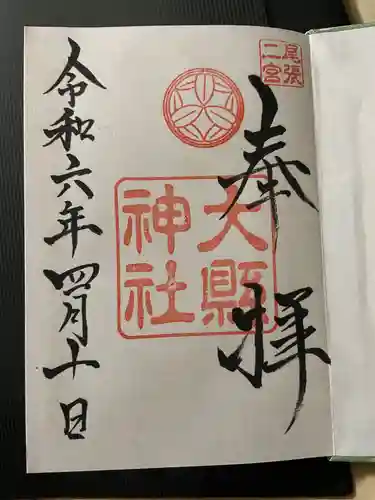 尾張
二宮
奉拝
大縣
神社
令和六年四月十日